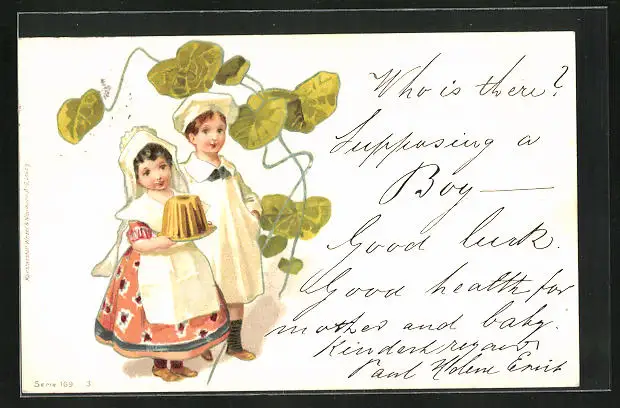 Who is there?
Supposing a
Boy —
Good luck.
Good health for
mother and baby.
Kindest regards
Paul Helene Ernst
Serie 169 3